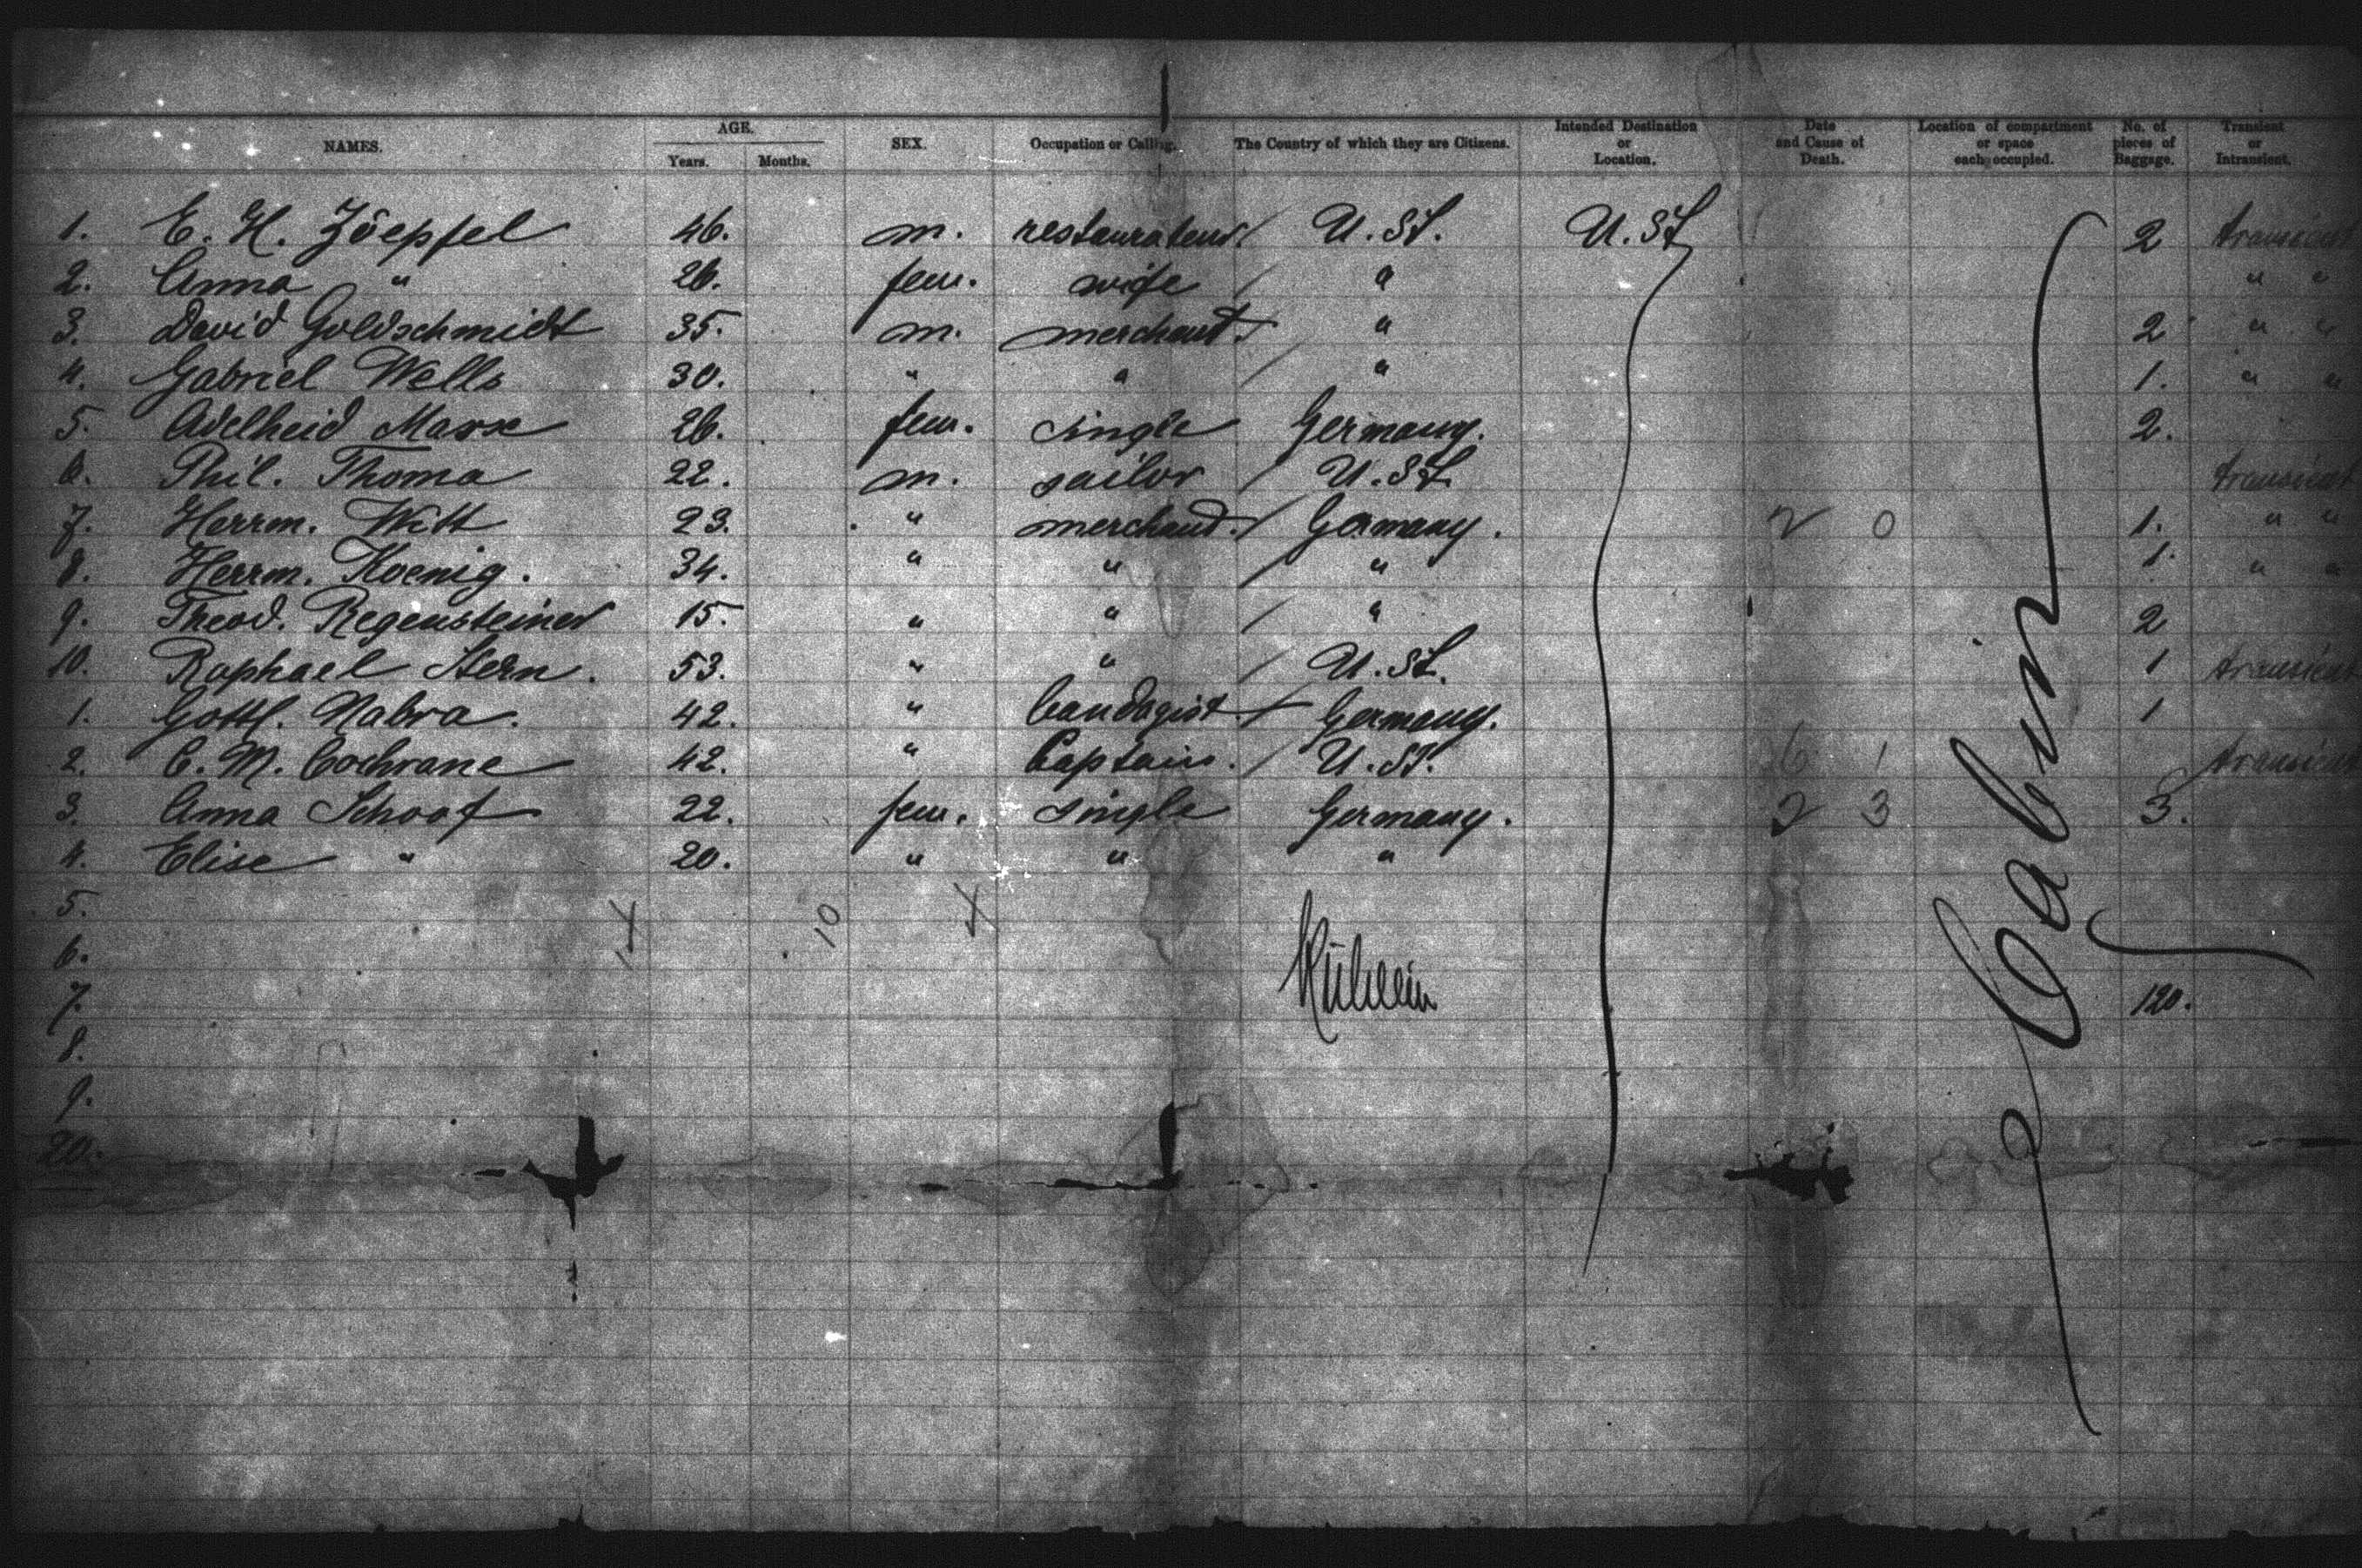 NAMES. AGE. Years. Months. SEX. Occupation or Calling. The Country of which they are Citizens. Intended Destination or Location. Date and Cause of Death. Location of compartment or space each occupied. No. of pieces of Baggage. Transient or Intransient.
1. E. H. Zöepfel 46. m. restaurateur U. St. U. St 2 transient
2. Anna " 26. fem. wife " " "
3. David Goldschmidt 35. m. merchant. " 2 " "
4. Gabriel Wells 30. " " " 1. " "
5. Adelheid Marx 26. fem. single Germany. 2.
6. Phil. Thoma 22. m. sailor U. St. transient
7. Herrm. Witt 23. " merchand. Germany. 2 0 1. " "
8. Herrm. Koenig. 34. " " " 1. " "
9. Theod. Regensteiner 15. " " " 2
10. Raphael Stern. 53. " " U. St. 1 transient
1. Gottl. Nabra. 42. " bandagist. Germany. 1
2. C. M. Cochrane 42. " Captain. U. St. 6 1 transient
3. Anna Schoof 22. fem. single Germany. 2 3 3.
4. Elise " 20. " " "
5.
6.
7. 120.
8.
9.
20.
10
Cabin